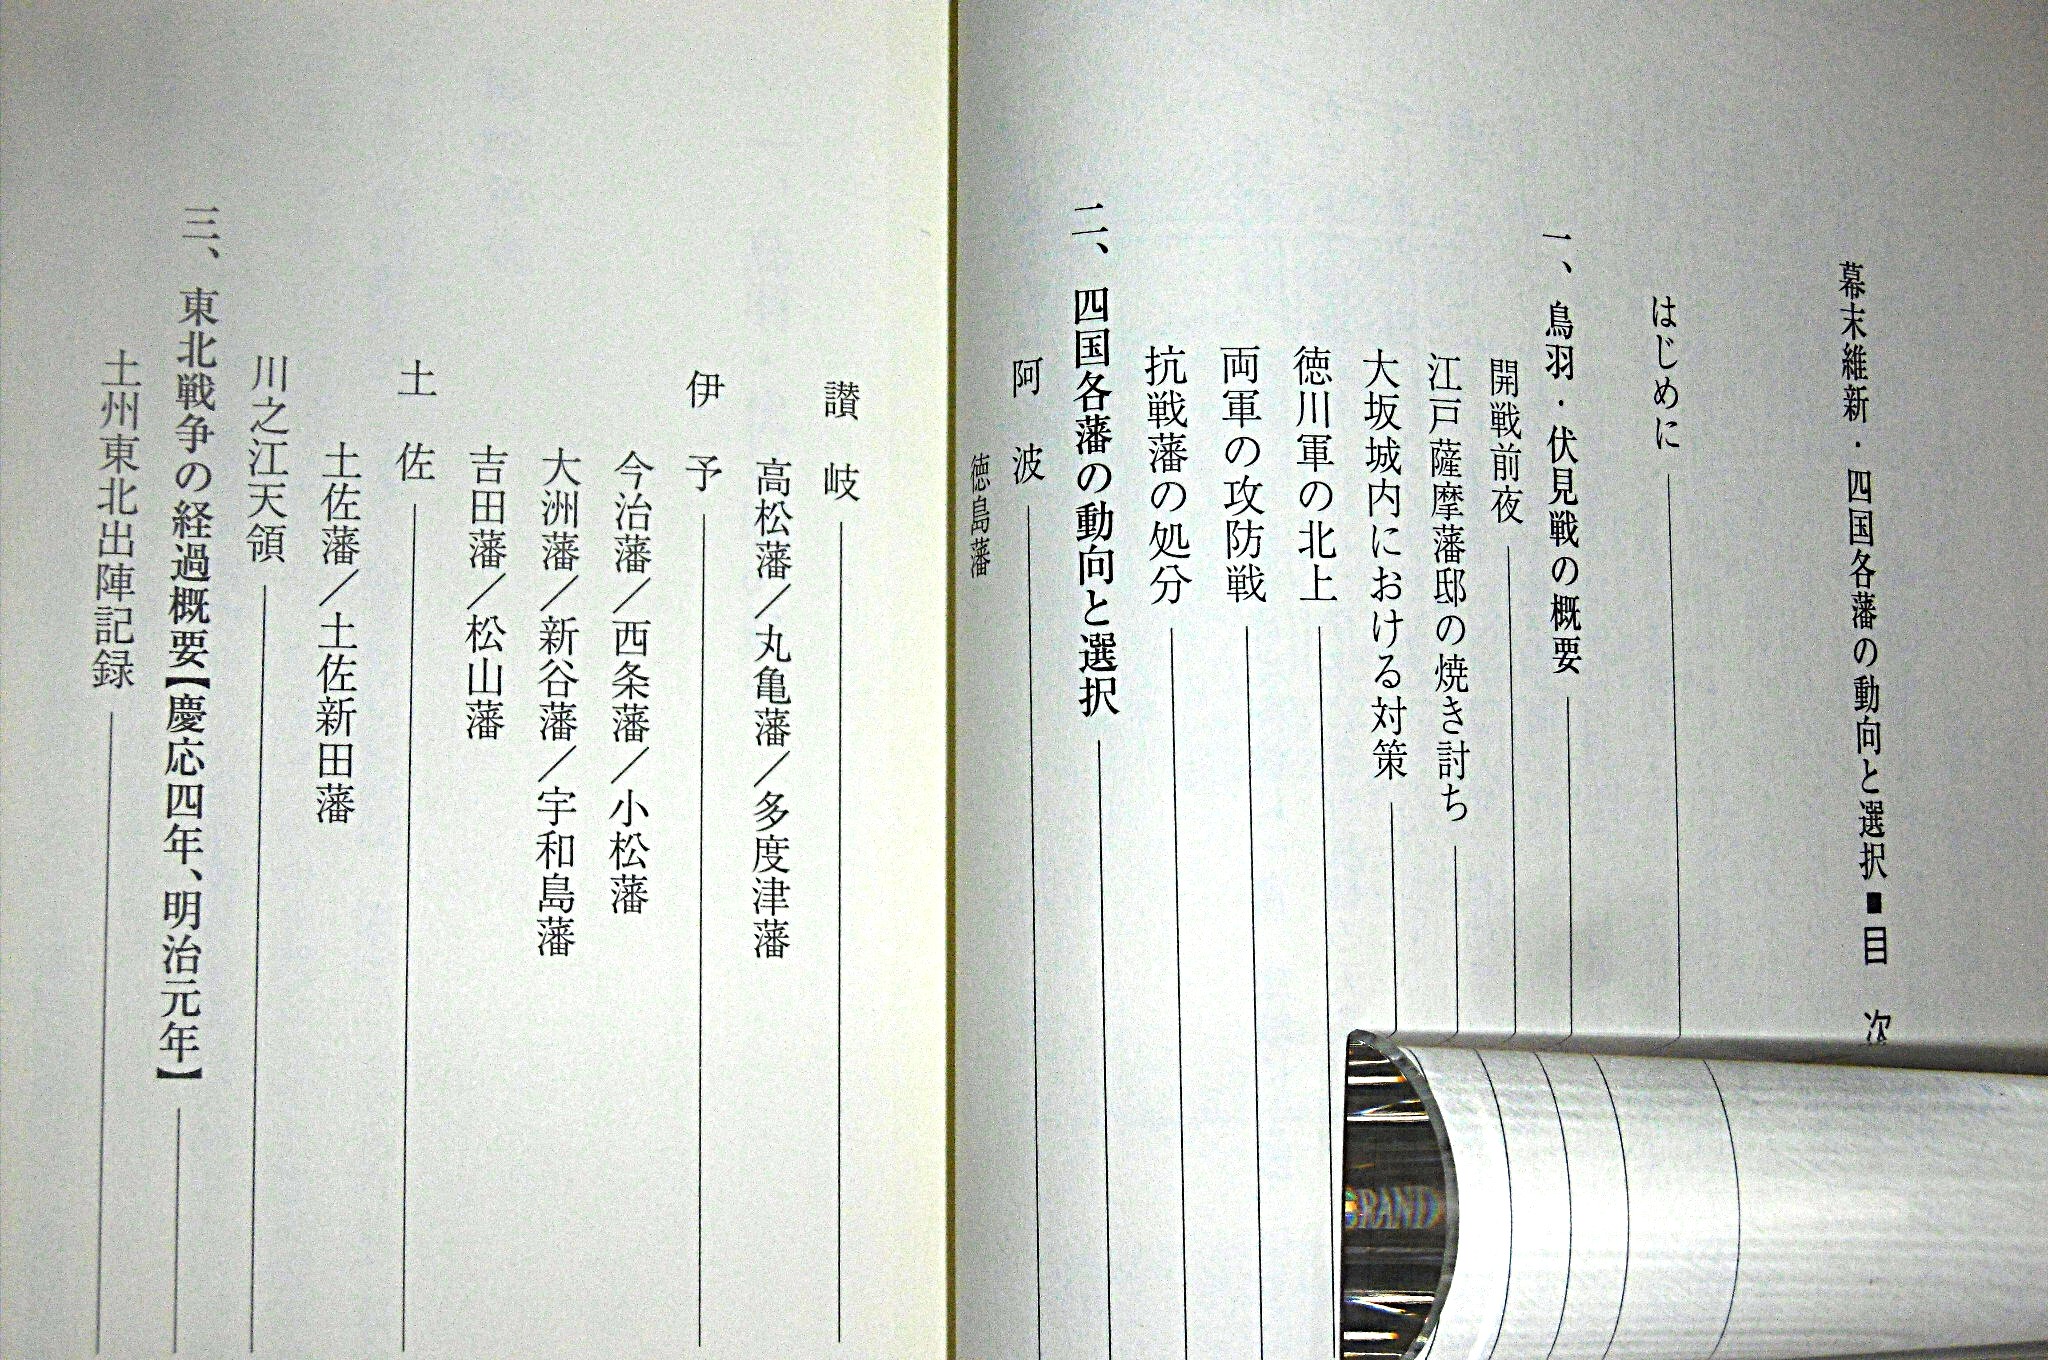 幕末維新・四国各藩の動向と選択■目 次
はじめに
一、鳥羽・伏見戦の概要
開戦前夜
江戸薩摩藩邸の焼き討ち
大坂城内における対策
徳川軍の北上
両軍の攻防戦
抗戦藩の処分
二、四国各藩の動向と選択
阿 波
徳島藩
讃 岐
高松藩／丸亀藩／多度津藩
伊 予
今治藩／西条藩／小松藩
大洲藩／新谷藩／宇和島藩
吉田藩／松山藩
土 佐
土佐藩／土佐新田藩
川之江天領
三、東北戦争の経過概要【慶応四年、明治元年】
土州東北出陣記録
GRAND